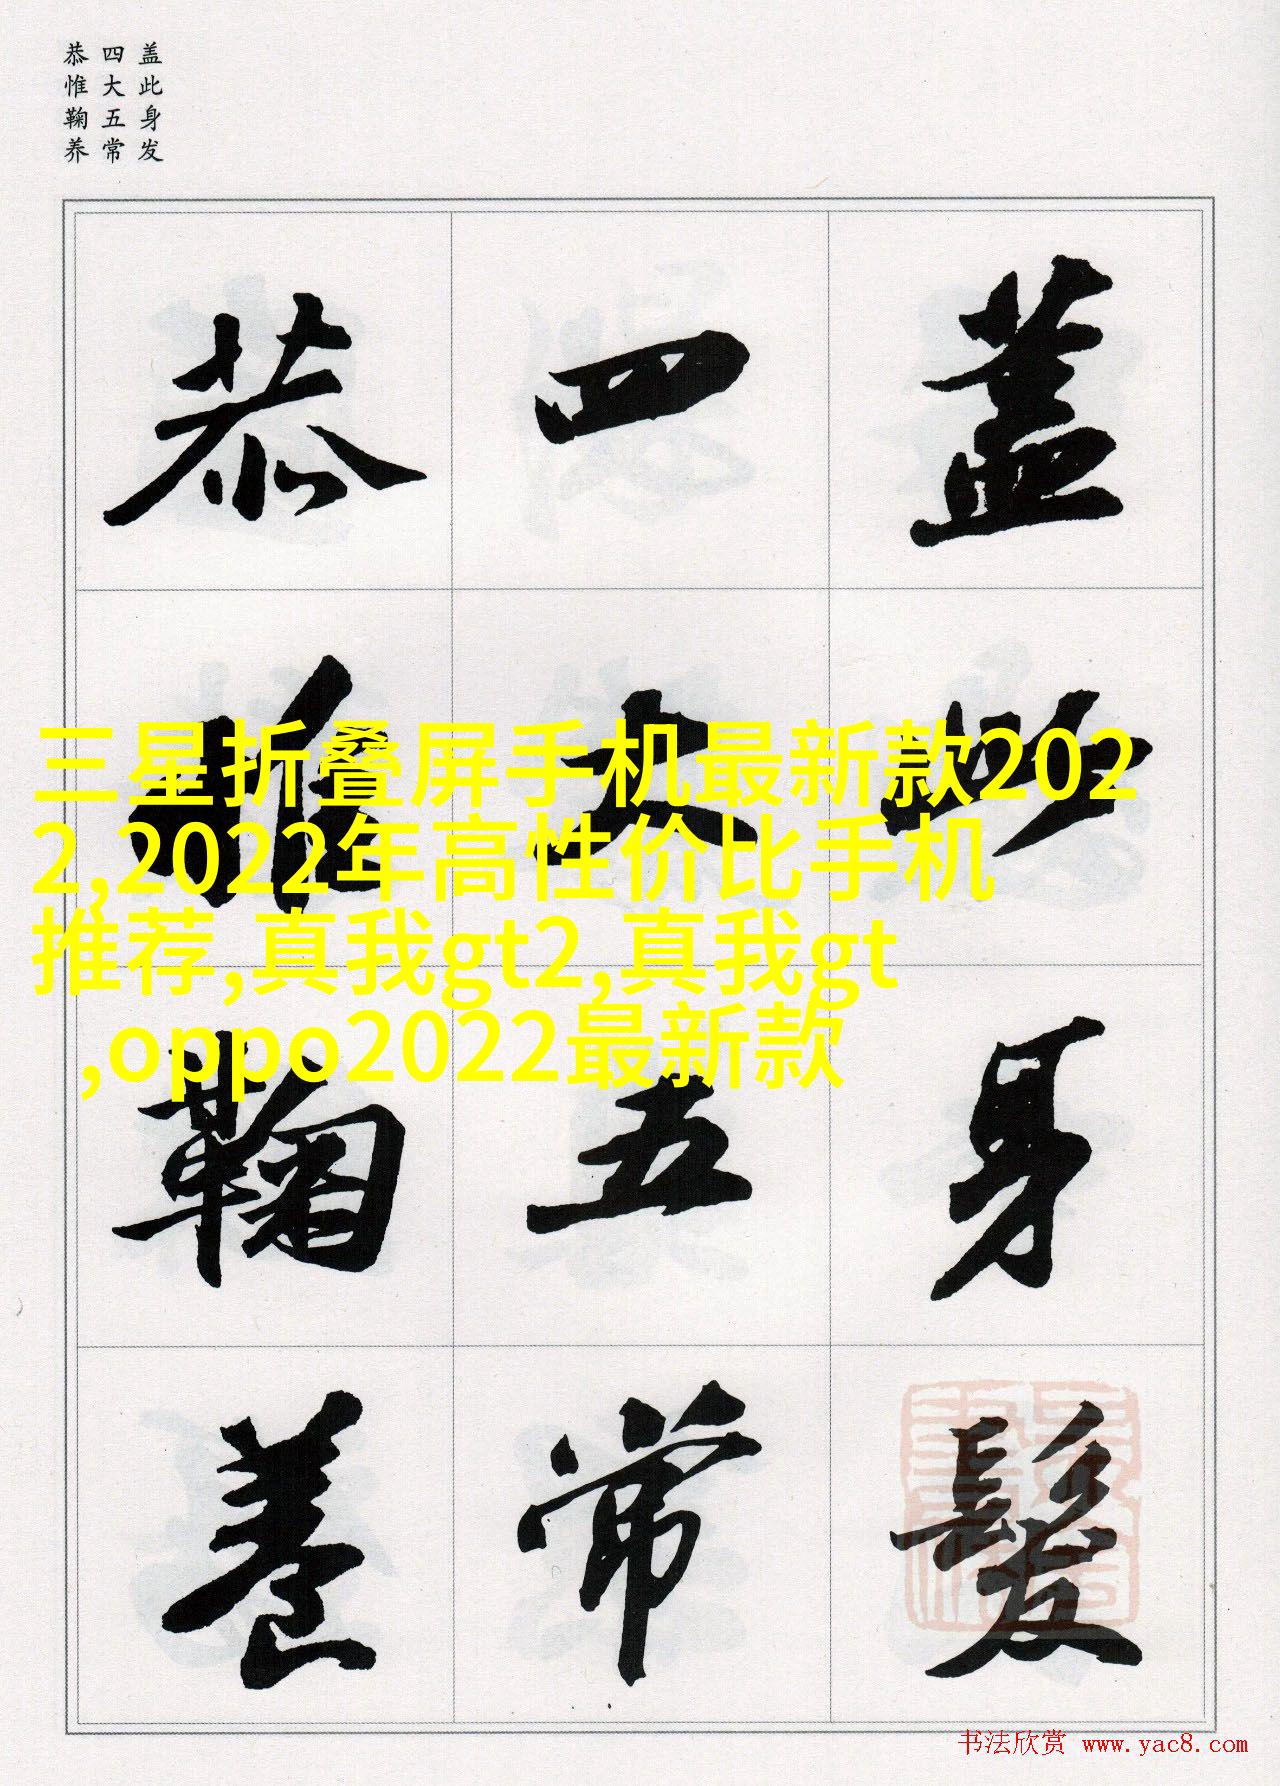 盖此身发
四大五常
恭惟鞠养
蓋此身髮
四大五常
恭惟鞠養
三星折叠屏手机最新款202
2,2022年高性价比手机
推荐,真我gt2,真我gt
,oppo2022最新款
书法欣赏 www.yac8.com